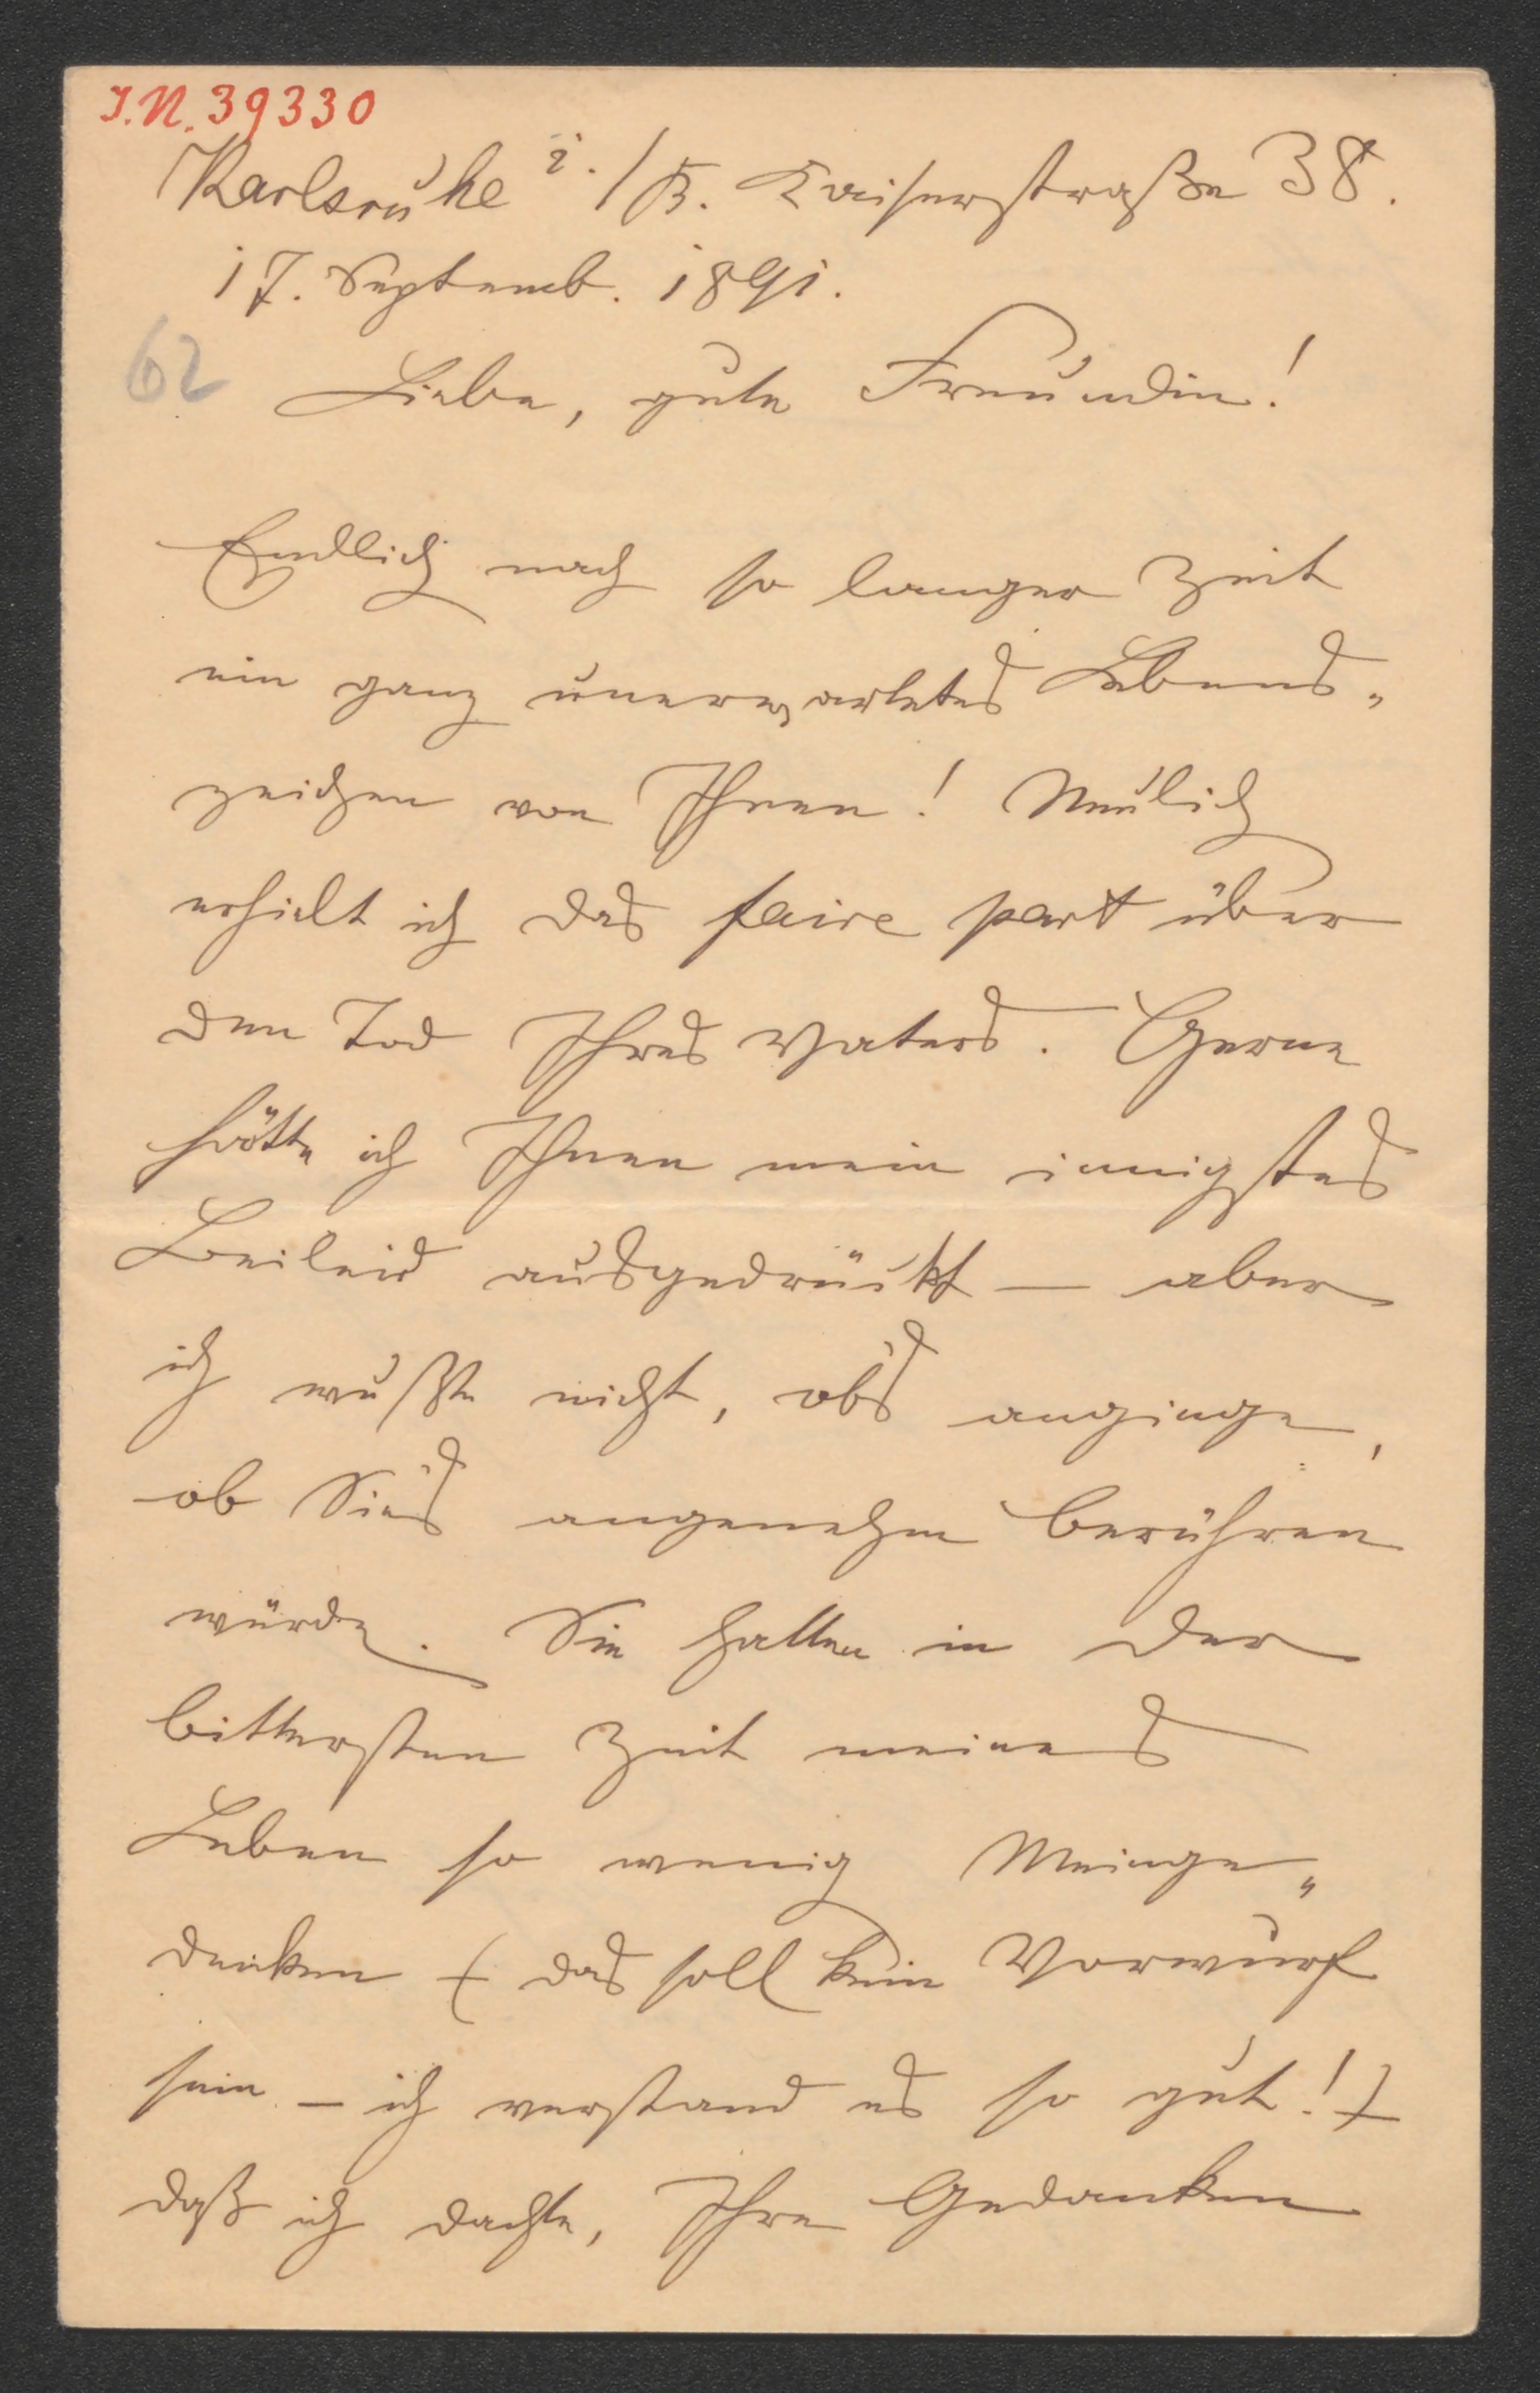 I.N. 39330
Karlsruhe i./B. Kaiserstraße 38.
17. Septemb. 1891.
62
Liebe, gute Freundin!
Endlich nach so langer Zeit
ein ganz unerwartetes Lebens-
zeichen von Ihnen! Neulich
erhielt ich das faire part über
den Tod Ihres Vaters. Gerne
hätte ich Ihnen mein innigstes
Beileid ausgedrückt — aber
ich wußte nicht, ob's anginge,
ob Sie's angenehm berühren
würde. Sie hatten in der
bittersten Zeit meines
Leben so wenig Meinge-
denken (das soll kein Vorwurf
sein – ich verstand es so gut!)
daß ich dachte, Ihre Gedanken